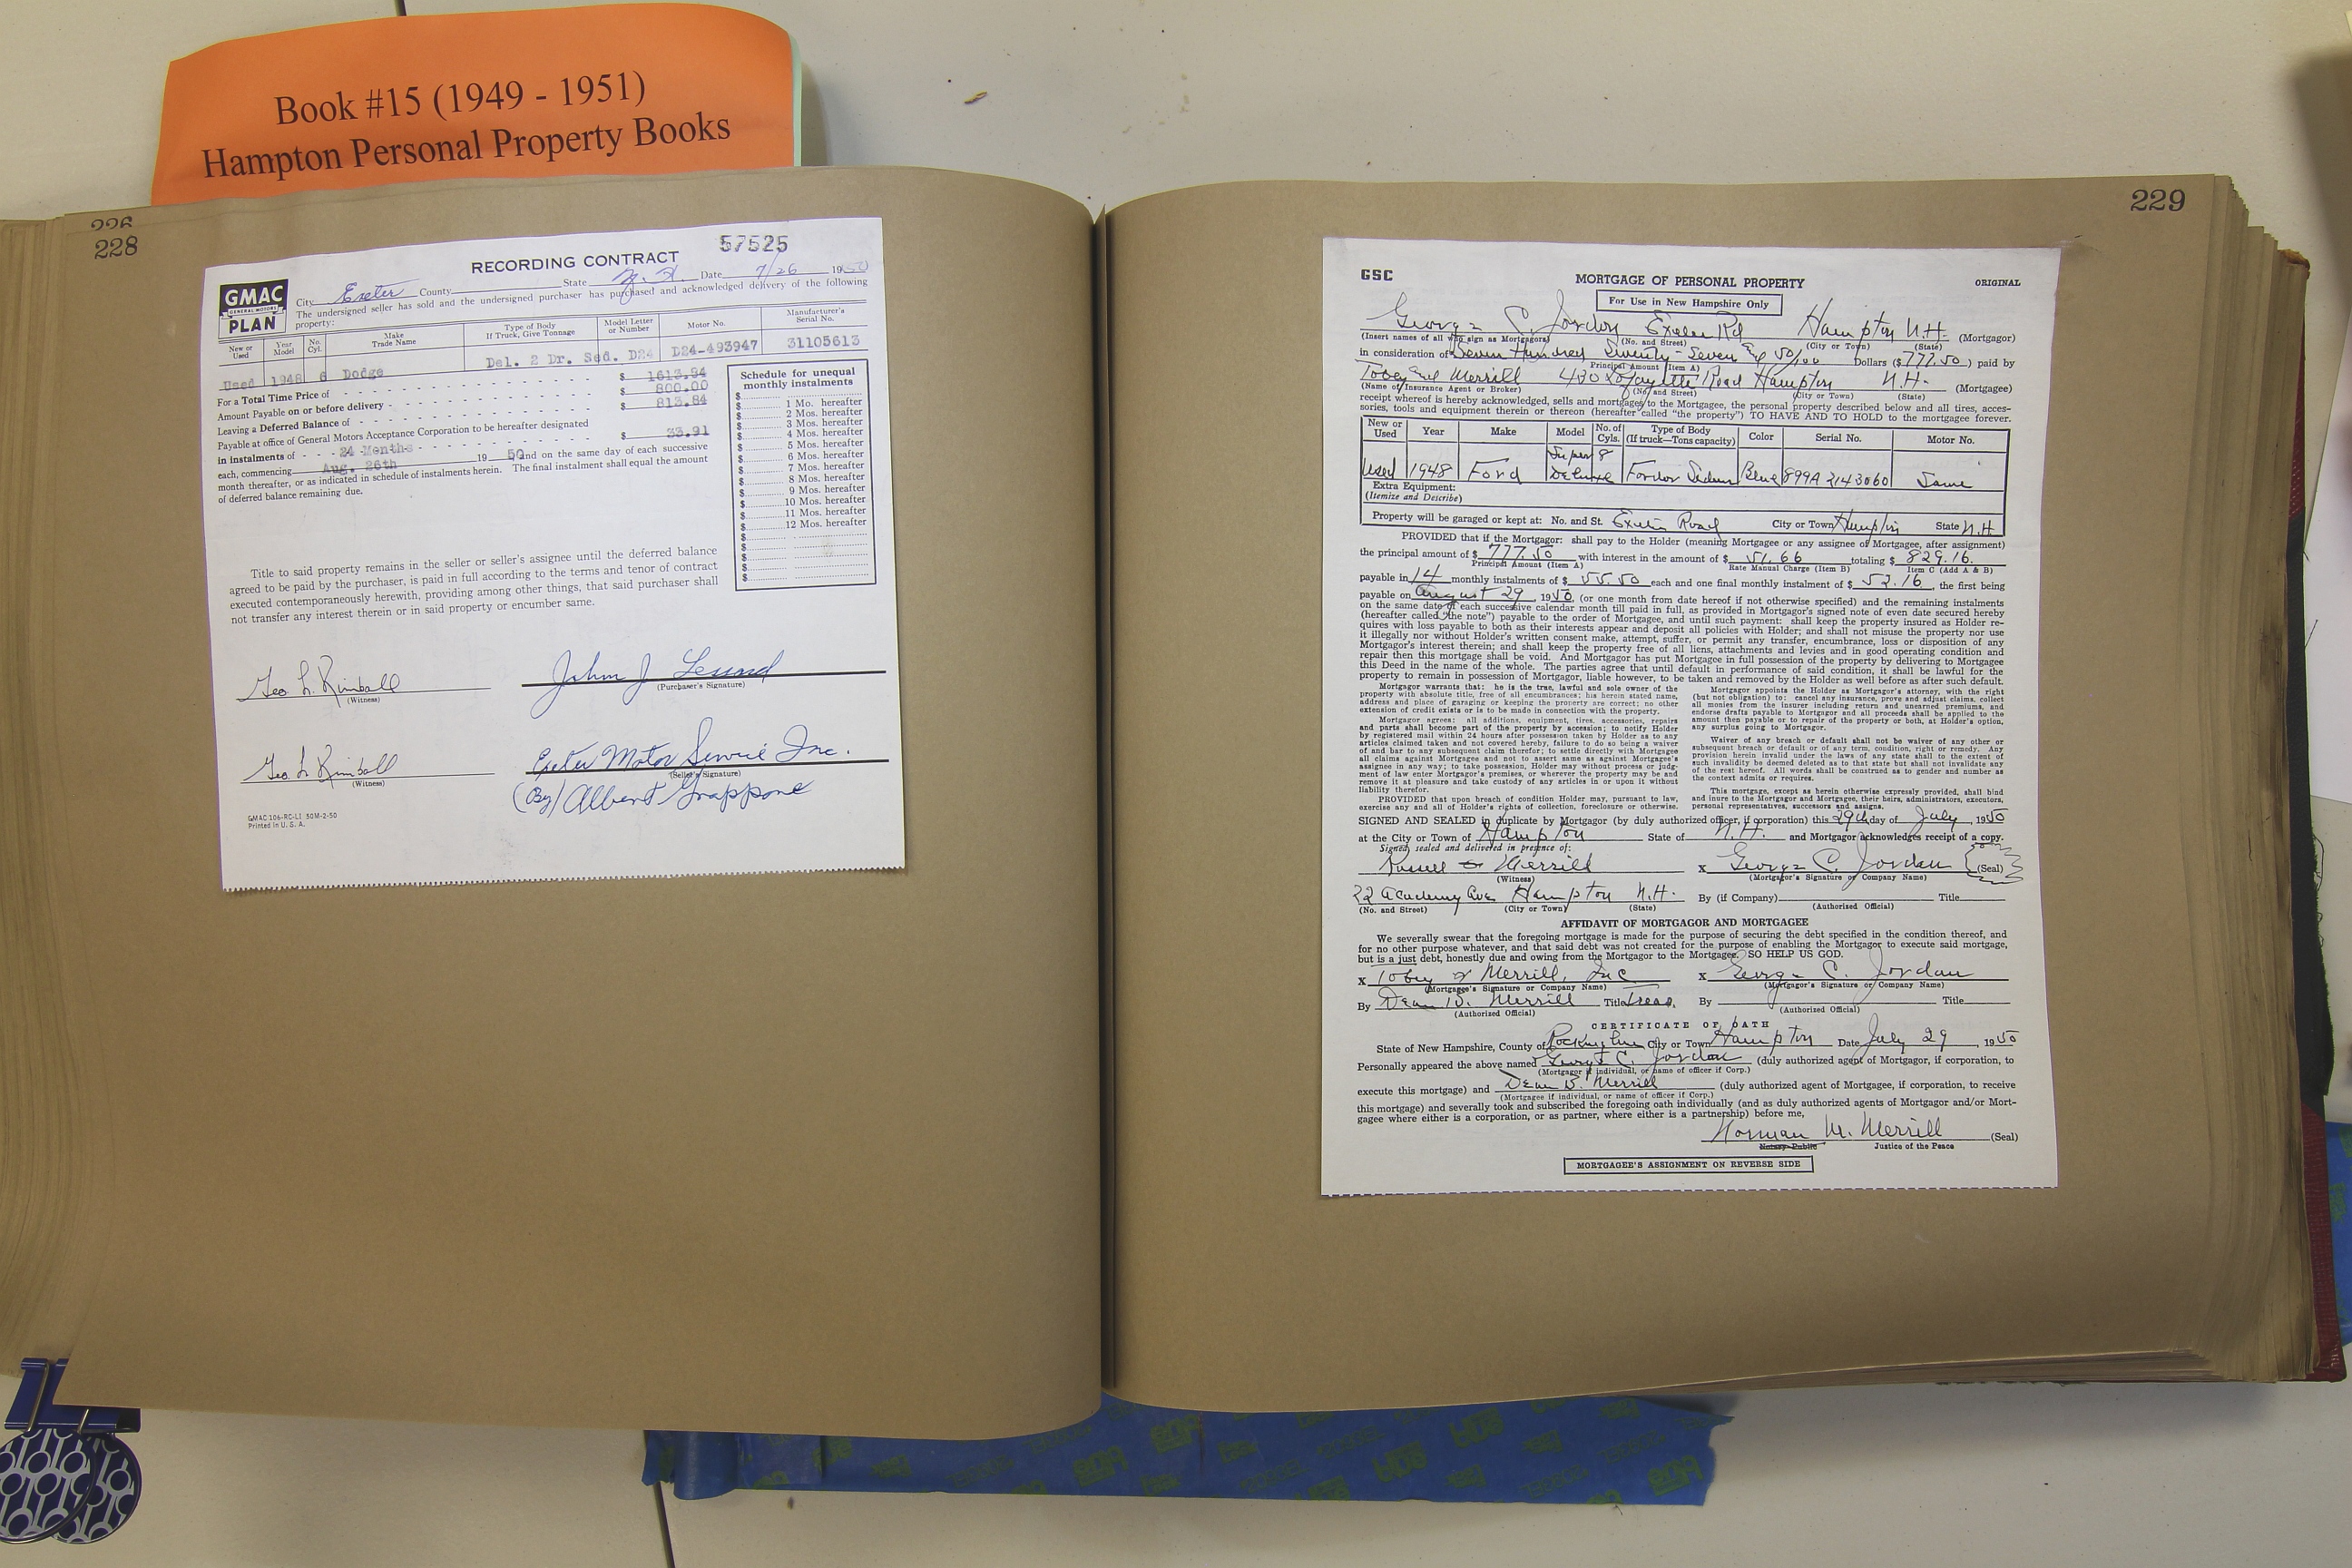 Book #15 (1949 - 1951)
Hampton Personal Property Books
226
228
57525
RECORDING CONTRACT
GMAC
GENERAL MOTORS
PLAN
City Exeter County State N. H. Date 7/26 1950
The undersigned seller has sold and the undersigned purchaser has purchased and acknowledged delivery of the following
property:
New or Used Year Model No. Cyl. Make Trade Name Type of Body If Truck, Give Tonnage Model Letter or Number Motor No. Manufacturer's Serial No.
Used 1948 6 Dodge Del. 2 Dr. Sed. D24 D24-493947 31105613
For a Total Time Price of - - - $ 1613.84
Amount Payable on or before delivery - - - $ 800.00
Leaving a Deferred Balance of - - - $ 813.84
Payable at office of General Motors Acceptance Corporation to be hereafter designated
in instalments of - - - 24 Months - - - $ 33.91
each, commencing Aug. 26th 19 50 and on the same day of each successive
month thereafter, or as indicated in schedule of instalments herein. The final instalment shall equal the amount
of deferred balance remaining due.
Schedule for unequal
monthly instalments
$
$ 1 Mo. hereafter
$ 2 Mos. hereafter
$ 3 Mos. hereafter
$ 4 Mos. hereafter
$ 5 Mos. hereafter
$ 6 Mos. hereafter
$ 7 Mos. hereafter
$ 8 Mos. hereafter
$ 9 Mos. hereafter
$ 10 Mos. hereafter
$ 11 Mos. hereafter
$ 12 Mos. hereafter
$
$
$
$
$
Title to said property remains in the seller or seller's assignee until the deferred balance
agreed to be paid by the purchaser, is paid in full according to the terms and tenor of contract
executed contemporaneously herewith, providing among other things, that said purchaser shall
not transfer any interest therein or in said property or encumber same.
Geo L. Kimball John J
(Witness) (Purchaser's Signature)
Geo L Kimball Exeter Motor Service Inc.
(Witness) (Seller's Signature)
(By) Albert Grappone
GMAC 106-RC-L1 50M-2-50
Printed in U. S. A.
229
GSC MORTGAGE OF PERSONAL PROPERTY ORIGINAL
For Use in New Hampshire Only
George C. Jordan Exeter Rd Hampton N.H. (Mortgagor)
(Insert names of all who sign as Mortgagors) (No. and Street) (City or Town) (State)
in consideration of Seven Hundred Seventy-Seven and 50/100 Dollars ($777.50) paid by
Principal Amount (Item A)
Tobey and Merrill 430 Lafayette Road Hampton N.H. (Mortgagee)
(Name of Insurance Agent or Broker) (No. and Street) (City or Town) (State)
receipt whereof is hereby acknowledged, sells and mortgages to the Mortgagee, the personal property described below and all tires, acces-
sories, tools and equipment therein or thereon (hereafter called "the property") TO HAVE AND TO HOLD to the mortgagee forever.
New or Used Year Make Model No. of Cyls. Type of Body (If truck—Tons capacity) Color Serial No. Motor No.
Used 1948 Ford Super Deluxe 8 Fordor Sedan Blue 899A 2143060 Same
Extra Equipment:
(Itemize and Describe)
Property will be garaged or kept at: No. and St. Exeter Road City or Town Hampton State N.H.
PROVIDED that if the Mortgagor: shall pay to the Holder (meaning Mortgagee or any assignee of Mortgagee, after assignment)
the principal amount of $ 777.50 with interest in the amount of $ 51.66 totaling $ 829.16
Principal Amount (Item A) Rate Manual Charge (Item B) Item C (Add A & B)
payable in 14 monthly instalments of $ 55.50 each and one final monthly instalment of $ 52.16, the first being
payable on August 29, 1950, (or one month from date hereof if not otherwise specified) and the remaining instalments
on the same date of each successive calendar month till paid in full, as provided in Mortgagor's signed note of even date secured hereby
(hereafter called "the note") payable to the order of Mortgagee, and until such payment: shall keep the property insured as Holder re-
quires with loss payable to both as their interests appear and deposit all policies with Holder; and shall not misuse the property nor use
it illegally nor without Holder's written consent make, attempt, suffer, or permit any transfer, encumbrance, loss or disposition of any
Mortgagor's interest therein; and shall keep the property free of all liens, attachments and levies and in good operating condition and
repair then this mortgage shall be void. And Mortgagor has put Mortgagee in full possession of the property by delivering to Mortgagee
this Deed in the name of the whole. The parties agree that until default in performance of said condition, it shall be lawful for the
property to remain in possession of Mortgagor, liable however, to be taken and removed by the Holder as well before as after such default.
Mortgagor warrants that: he is the true, lawful and sole owner of the
property with absolute title, free of all encumbrances; his herein stated name,
address and place of garaging or keeping the property are correct; no other
extension of credit exists or is to be made in connection with the property.
Mortgagor agrees: all additions, equipment, tires, accessories, repairs
and parts shall become part of the property by accession; to notify Holder
by registered mail within 24 hours if possession taken by Holder as to any
articles claimed taken and not covered hereby, failure to do so being a waiver
of and bar to any subsequent claim therefor; to settle directly with Mortgagee
all claims against Mortgagee and not to assert same as against Mortgagee's
assignee in any way; to take possession, Holder may without process or judg-
ment of law enter Mortgagor's premises, or wherever the property may be and
remove it at pleasure and take custody of any articles in or upon it without
liability therefor.
PROVIDED that upon breach of condition Holder may, pursuant to law,
exercise any and all of Holder's rights of collection, foreclosure or otherwise.
Mortgagor appoints the Holder as Mortgagor's attorney, with the right
(but not obligation) to: cancel any insurance, prove and adjust claims, collect
all monies from the insurer including return and unearned premiums, and
endorse drafts payable to Mortgagor and all proceeds shall be applied to the
amount then payable or to repair of the property or both, at Holder's option,
any surplus going to Mortgagor.
Waiver of any breach or default shall not be waiver of any other or
subsequent breach or default or of any term, condition, right or remedy. Any
provision herein invalid under the laws of any state shall to the extent of
such invalidity be deemed deleted as to that state but shall not invalidate any
of the rest hereof. All words shall be construed as to gender and number as
the context admits or requires.
This mortgage, except as herein otherwise expressly provided, shall bind
and inure to the Mortgagor and Mortgagee, their heirs, administrators, executors,
personal representatives, successors and assigns.
SIGNED AND SEALED in duplicate by Mortgagor (by duly authorized officer, if corporation) this 29th day of July, 1950
at the City or Town of Hampton State of N.H. and Mortgagor acknowledges receipt of a copy.
Signed, sealed and delivered in presence of:
Russell Merrill X George C. Jordan (Seal)
(Witness) (Mortgagor's Signature or Company Name)
22 Academy Ave Hampton N.H. By (if Company) Title
(No. and Street) (City or Town) (State) (Authorized Official)
AFFIDAVIT OF MORTGAGOR AND MORTGAGEE
We severally swear that the foregoing mortgage is made for the purpose of securing the debt specified in the condition thereof, and
for no other purpose whatever, and that said debt was not created for the purpose of enabling the Mortgagor to execute said mortgage,
but is a just debt, honestly due and owing from the Mortgagor to the Mortgagee. SO HELP US GOD.
X Tobey & Merrill, Inc X George C. Jordan
(Mortgagee's Signature or Company Name) (Mortgagor's Signature or Company Name)
By Dean B. Merrill Title Treas. By Title
(Authorized Official) (Authorized Official)
CERTIFICATE OF OATH
State of New Hampshire, County of Rockingham City or Town Hampton Date July 29, 1950
Personally appeared the above named George C. Jordan (duly authorized agent of Mortgagor, if corporation, to
(Mortgagor if individual, or name of officer if Corp.)
execute this mortgage) and Dean B. Merrill (duly authorized agent of Mortgagee, if corporation, to receive
(Mortgagee if individual, or name of officer if Corp.)
this mortgage) and severally took and subscribed the foregoing oath individually (and as duly authorized agents of Mortgagor and/or Mort-
gagee where either is a corporation, or as partner, where either is a partnership) before me,
Norman M. Merrill (Seal)
Notary Public Justice of the Peace
MORTGAGEE'S ASSIGNMENT ON REVERSE SIDE